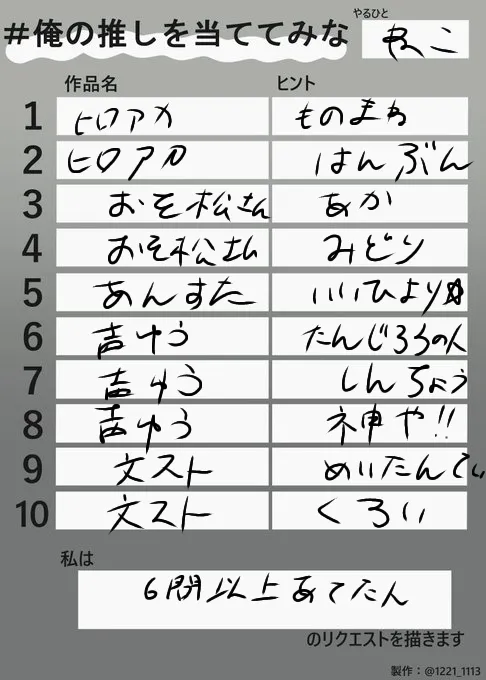 #俺の推しを当ててみな
やるひと
ねこ
作品名 ヒント
1 ヒロアカ ものまね
2 ヒロアカ はんぶん
3 おそ松さん あか
4 おそ松さん みどり
5 あんすた いいひより
6 声ゆう たんじろうの人
7 声ゆう しんちょう
8 声ゆう 神や!!
9 文スト めいたんてい
10 文スト くろい
私は
6問以上あてたん
のリクエストを描きます
製作：@1221_1113